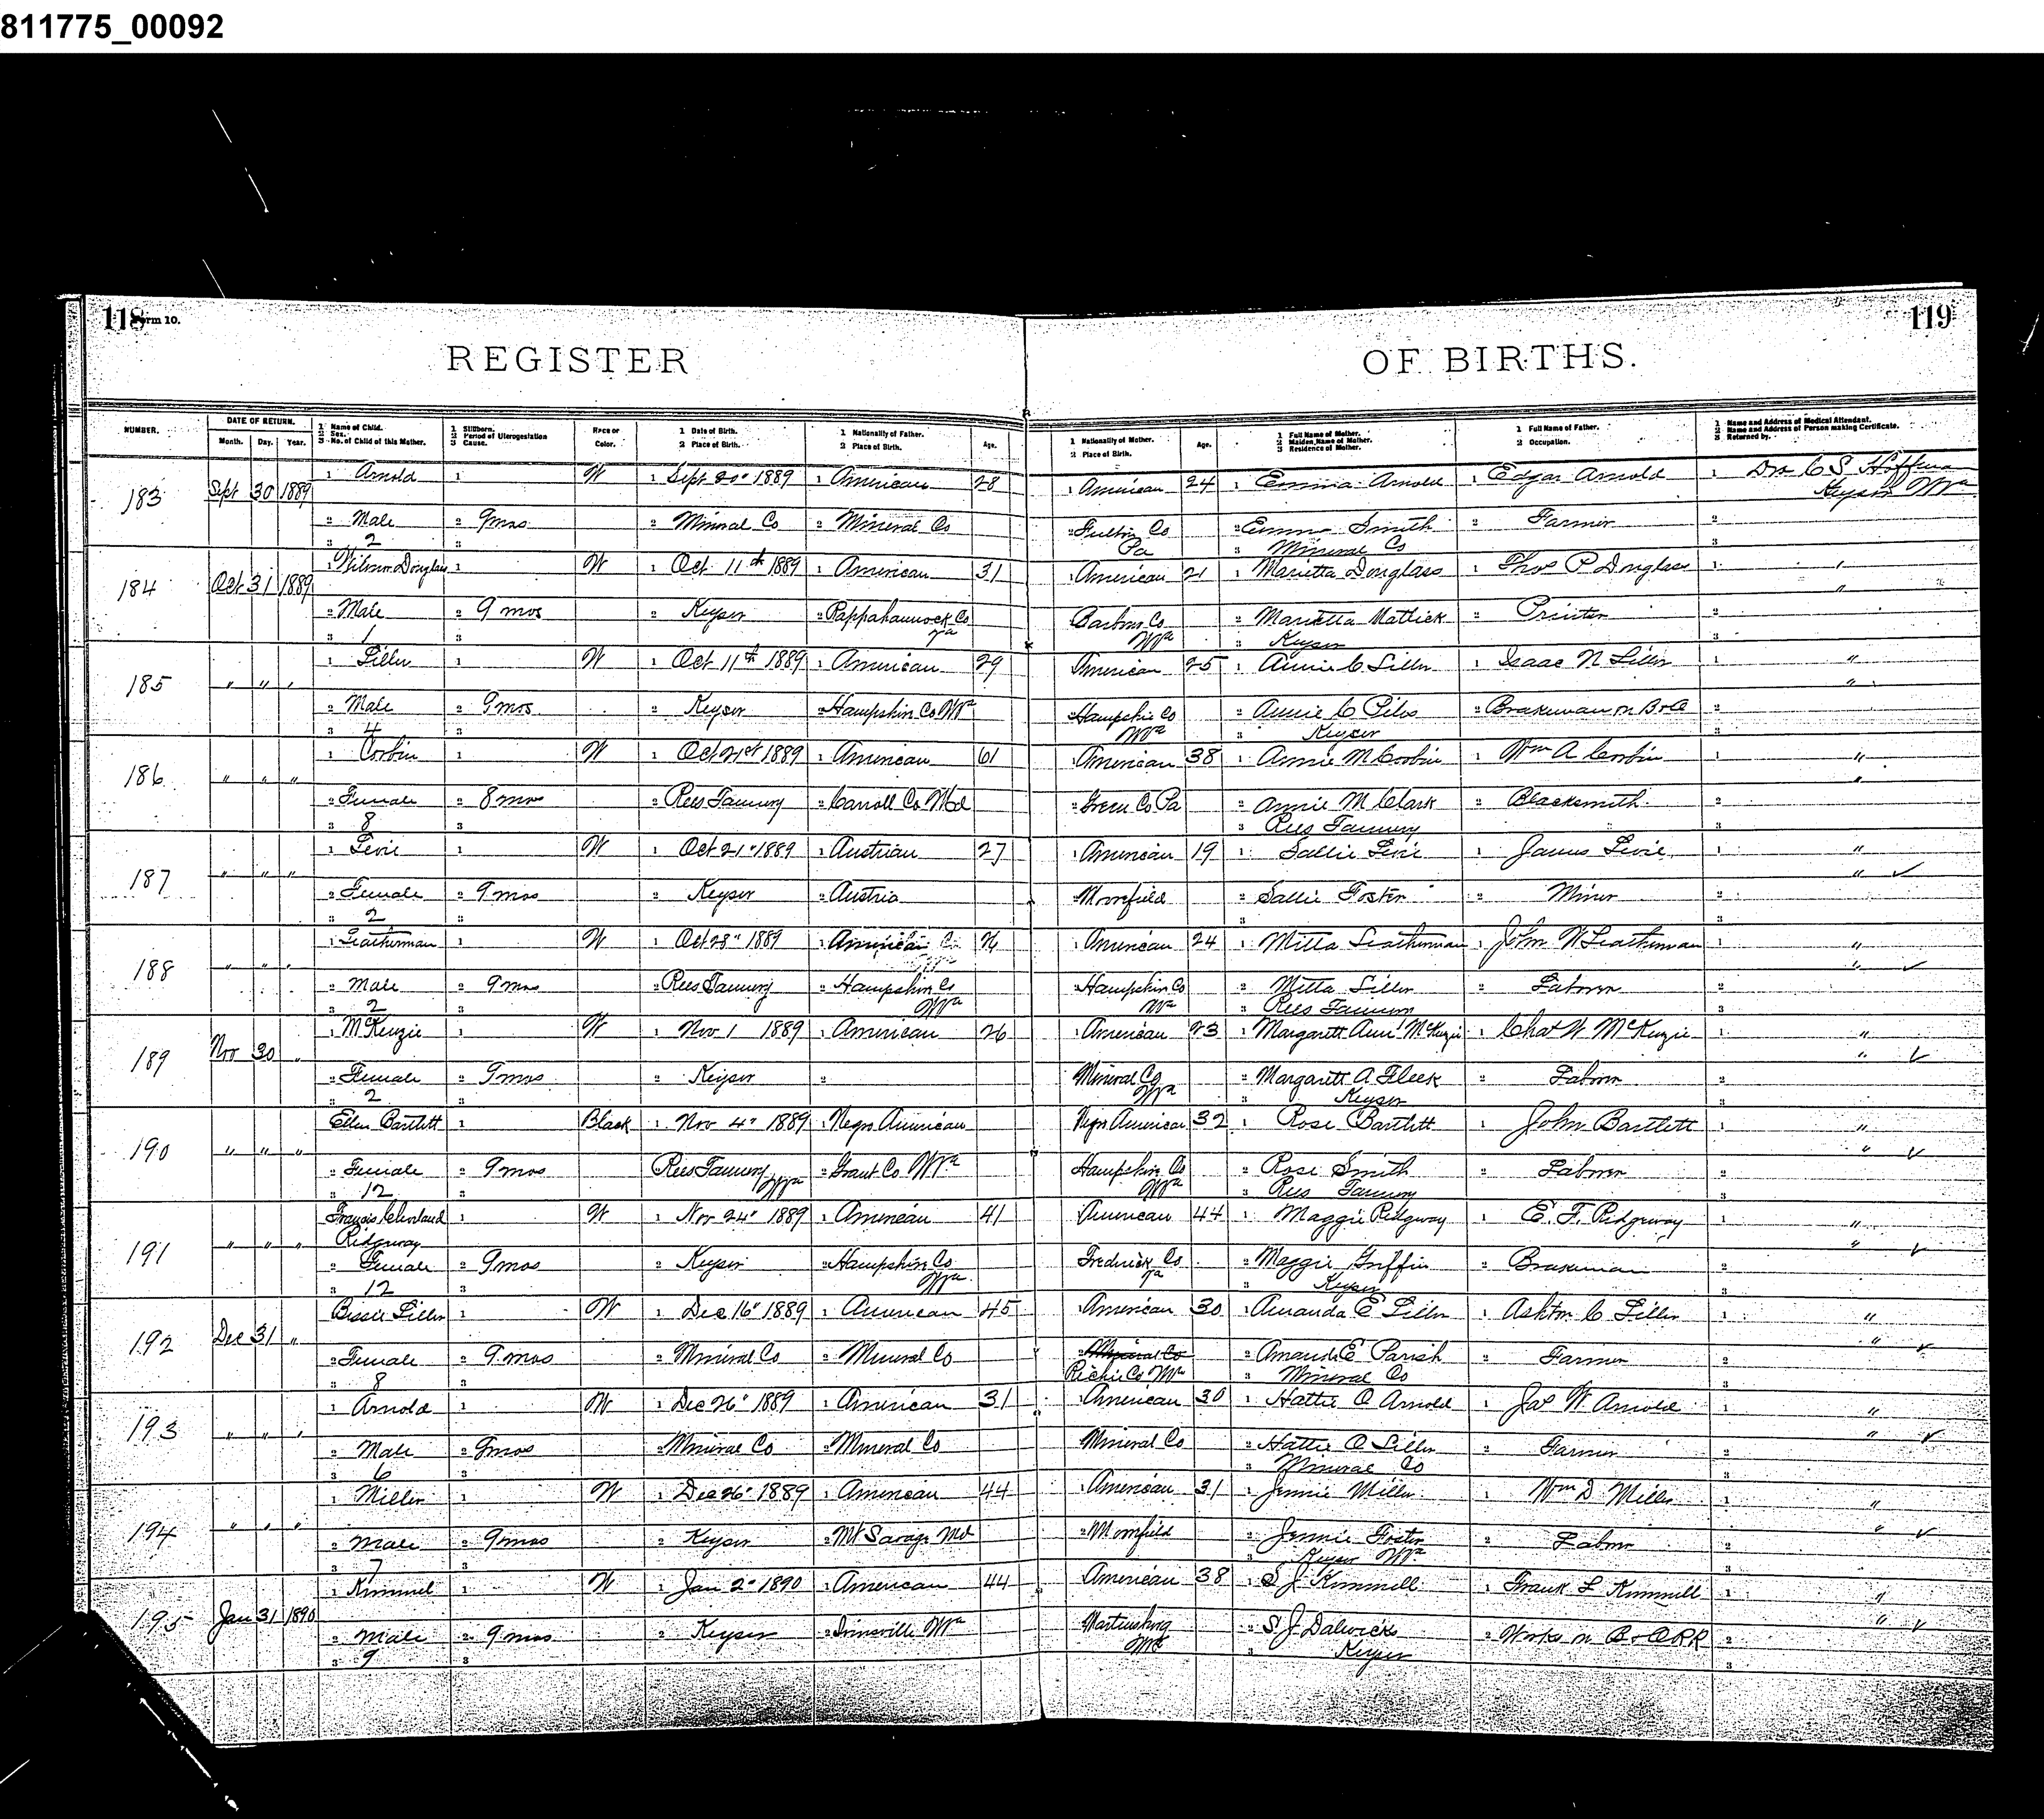 811775_00092
118 Form 10.
119
REGISTER OF BIRTHS.
NUMBER.
DATE OF RETURN.
Month. Day. Year.
1 Name of Child.
2 Sex.
3 No. of Child of this Mother.
1 Stillborn.
2 Period of Uterogestation
3 Cause.
Race or
Color.
1 Date of Birth.
2 Place of Birth.
1 Nationality of Father.
2 Place of Birth.
Age.
1 Nationality of Mother.
2 Place of Birth.
Age.
1 Full Name of Mother.
2 Maiden Name of Mother.
3 Residence of Mother.
1 Full Name of Father.
2 Occupation.
1 Name and Address of Medical Attendant.
2 Name and Address of Person making Certificate.
3 Returned by.
183 Sept 30 1889 1 Arnold 1 W 1 Sept 20" 1889 1 American 28 1 American 24 1 Emma Arnold 1 Edgar Arnold 1 Drs C S Hoffman
Keyser Wva
2 Male 2 9mos 2 Mineral Co 2 Mineral Co 2 Fulton Co 2 Emma Smith 2 Farmer 2
3 2 3 Pa 3 Mineral Co 3
184 Oct 31 1889 1 Wilmer Douglass 1 W 1 Oct 11th 1889 1 American 31 1 American 21 1 Marietta Douglass 1 Thos P Douglass 1 "
"
2 Male 2 9 mos 2 Keyser 2 Rappahannock Co Barbour Co 2 Marietta Matlick 2 Printer 2
3 1 3 Va Wva 3 Keyser 3
185 " " " 1 Liller 1 W 1 Oct 11th 1889 1 American 29 American 25 1 Annie C Liller 1 Isaac N Liller 1 "
"
2 Male 2 9mos 2 Keyser 2 Hampshire Co Wva Hampshire Co 2 Annie C Piles 2 Brakeman on B&O 2
3 4 3 Wva 3 Keyser 3
186 " " " 1 Corbin 1 W 1 Oct 21st 1889 1 American 61 1 American 38 1 Annie M Corbin 1 Wm A Corbin 1 "
"
2 Female 2 8 mos 2 Rees Tannery 2 Carroll Co Md 2 Green Co Pa 2 Annie M Clark 2 Blacksmith 2
3 8 3 3 Rees Tannery 3
187 " " " 1 Levie 1 W 1 Oct 21" 1889 1 Austrian 27 1 American 19 1 Sallie Levie 1 James Levie 1 "
"
2 Female 2 9 mos 2 Keyser 2 Austria 2 Moorefield 2 Sallie Foster 2 Miner 2
3 2 3 3 3
188 " " " 1 Leatherman 1 W 1 Oct 28" 1889 1 American 1 American 24 1 Mitta Leatherman 1 John W Leatherman 1 "
"
2 Male 2 9 mos 2 Rees Tannery 2 Hampshire Co Hampshire Co 2 Mitta Liller 2 Laborer 2
3 2 3 Wva Wva 3 Rees Tannery 3
189 Nov 30 " 1 McKenzie 1 W 1 Nov 1 1889 1 American 26 1 American 23 1 Margarett Ann McKenzie 1 Chas W McKenzie 1 "
"
2 Female 2 9mos 2 Keyser 2 Mineral Co 2 Margarett A Fleek 2 Laborer 2
3 2 3 Wva 3 Keyser 3
190 " " " Ellen Bartlett 1 Black 1 Nov 4" 1889 1 Negro American Negro American 32 1 Rose Bartlett 1 John Bartlett 1 "
"
2 Female 2 9mos Rees Tannery Wva 2 Grant Co Wva Hampshire Co 2 Rose Smith 2 Laborer 2
3 12 3 Wva 3 Rees Tannery 3
191 " " " Francis Cleveland 1 W 1 Nov 24" 1889 1 American 41 American 44 1 Maggie Ridgway 1 E. F. Ridgway 1 "
Ridgway "
2 Female 2 9mos 2 Keyser 2 Hampshire Co Frederick Co 2 Maggie Griffin 2 Brakeman 2
3 12 3 Wva Va 3 Keyser 3
192 Dec 31 " Bessie Liller 1 W 1 Dec 16" 1889 1 American 45 American 30 1 Amanda E Liller 1 Ashton C Liller 1 "
"
2 Female 2 9 mos 2 Mineral Co 2 Mineral Co 2 Mineral Co 2 Amanda E Parish 2 Farmer 2
3 8 3 Richie Co Wva 3 Mineral Co 3
193 " " " 1 Arnold 1 W 1 Dec 26" 1889 1 American 31 American 30 1 Hattie O Arnold 1 Jas W Arnold 1 "
"
2 Male 2 9mos 2 Mineral Co 2 Mineral Co Mineral Co 2 Hattie O Liller 2 Farmer 2
3 6 3 3 Mineral Co 3
194 " " " 1 Miller 1 W 1 Dec 26" 1889 1 American 44 American 31 1 Jennie Miller 1 Wm D Miller 1 "
"
2 Male 2 9mos 2 Keyser 2 Mt Savage Md 2 Moorefield 2 Jennie Foster 2 Laborer 2
3 7 3 3 Keyser Wva 3
195 Jan 31 1890 1 Kimmel 1 W 1 Jan 2" 1890 1 American 44 American 38 1 S J Kimmell 1 Frank L Kimmell 1 "
"
2 Male 2 9 mos 2 Keyser 2 Wva Martinsburg 2 S. J. 2 Works on B&ORR 2
3 9 3 3 Keyser 3